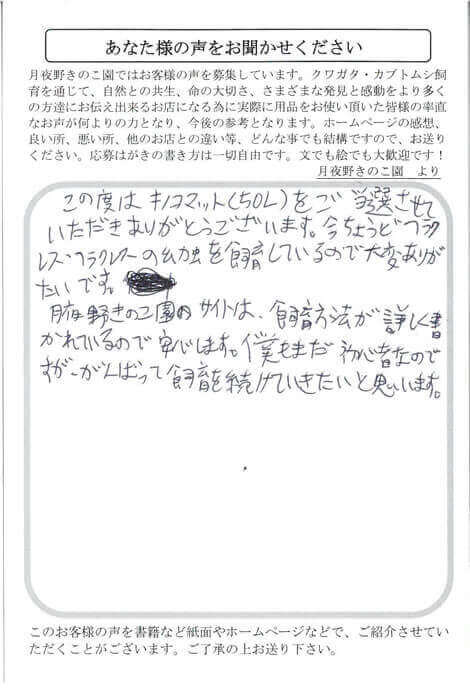 あなた様の声をお聞かせください
月夜野きのこ園ではお客様の声を募集しています。クワガタ・カブトムシ飼
育を通じて、自然との共生、命の大切さ、さまざまな発見と感動をより多く
の方達にお伝え出来るお店になる為に実際に用品をお使い頂いた皆様の率直
なお声が何よりの力となり、今後の参考となります。ホームページの感想、
良い所、悪い所、他のお店との違い等、どんな事でも結構ですので、お送り
ください。応募はがきの書き方は一切自由です。文でも絵でも大歓迎です！
月夜野きのこ園　より
この度は キノコマット(50L)をご当選させて
いただきありがとうございます。今ちょうど
の幼虫を飼育しているので大変ありが
たいです。
月夜野きのこ園のサイトは、飼育方法が詳しく書
かれているので安心します。僕もまだ初心者なので
すが、がんばって飼育を続けていきたいと思います。
このお客様の声を書籍など紙面やホームページなどで、ご紹介させてい
ただくことがございます。ご了承の上お送り下さい。